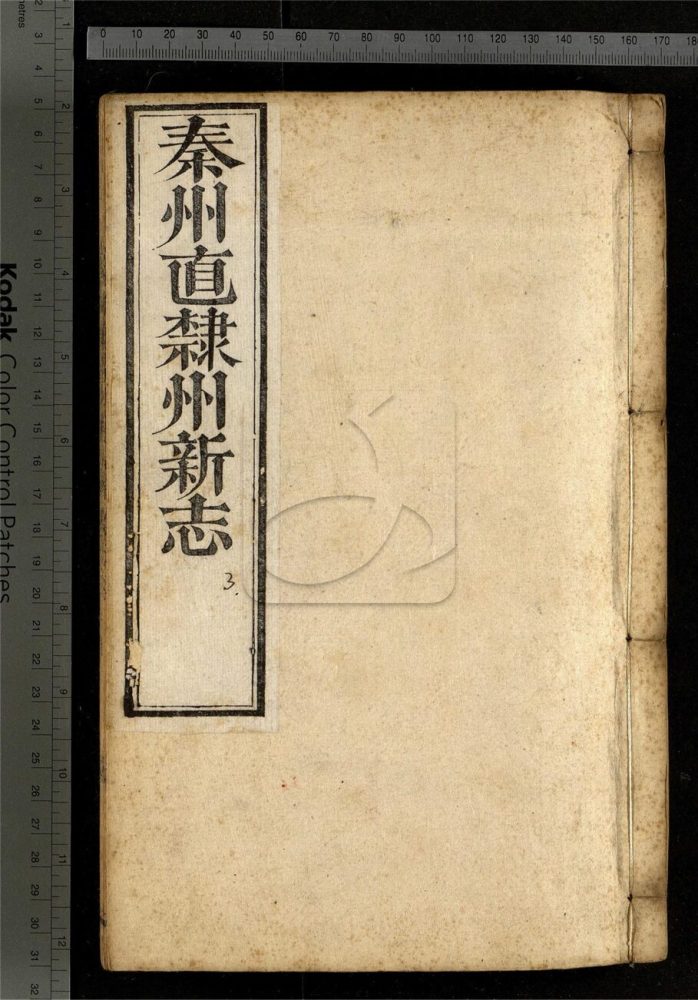 秦州直隸州新志
3.
0 10 20 30 40 50 60 70 80 90 100 110 120 130 140 150 160 170
metres
2 3 4 5 6 7 8 9 10 11 12 13 14 15 16 17 18 19 20 21 22 23 24 25 26 27 28 29 30 31 32
1 2 3 4 5 6 7 8 9 10 11 12
Kodak Color Control Patches